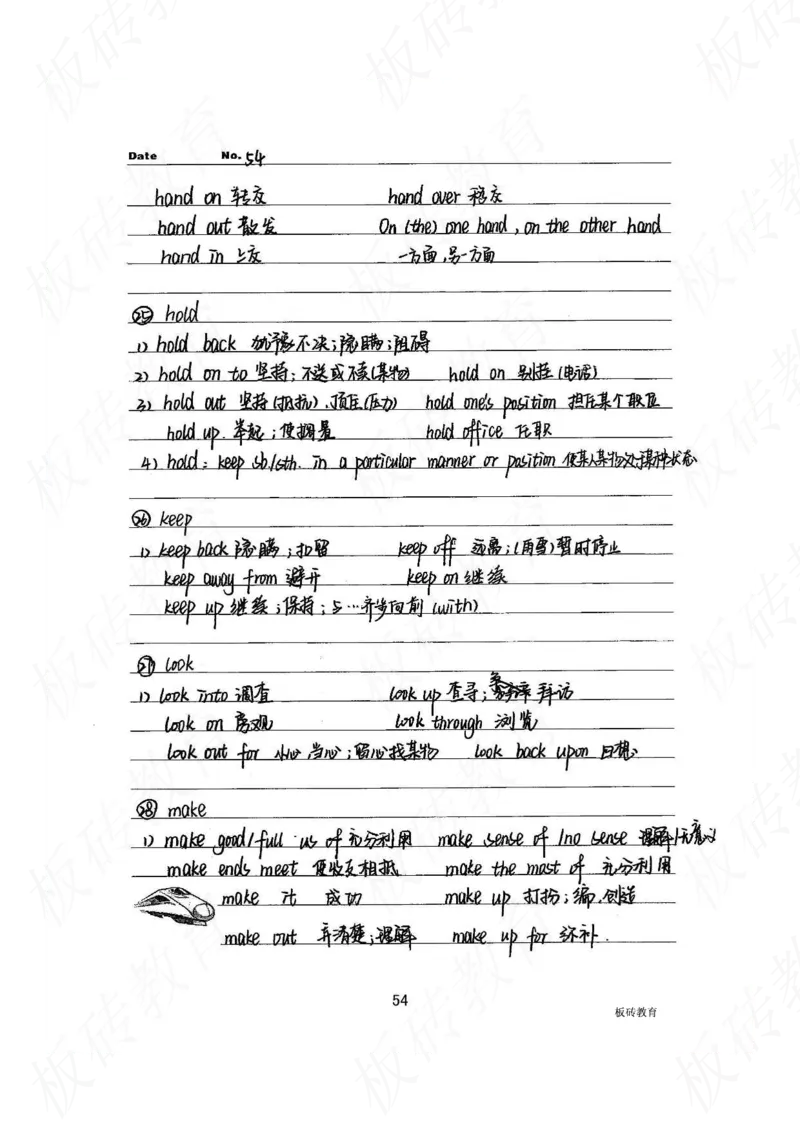 Date No. 54
hand on 转交 hand over 移交
hand out 散发 On (the) one hand, on the other hand
hand in 上交 一方面,另一方面
㉕ hold
1) hold back 犹豫不决;隐瞒;阻碍
2) hold on to 坚持;不送或不卖(某物) hold on 别挂(电话)
3) hold out 坚持(抵抗).顶住(压力) hold one's position 担任某个职位
hold up. 举起;使搁置 hold office 任职
4) hold: keep sb/sth. in a particular manner or position 使某人某物处于某种状态
㉖ keep
1) keep back 隐瞒;扣留 keep off 远离;(雨雪)暂时停止
keep away from 避开 keep on 继续
keep up 继续;保持;与…齐步向前 (with)
㉗ look
1) look into 调查 look up 查寻; 拜访
look on 旁观 look through 浏览
look out for 小心当心;留心找某物 look back upon 回想
㉘ make
1) make good/full us of 充分利用 make sense of /no sense 理解/无意义
make ends meet 使收支相抵 make the most of 充分利用
make it 成功 make up 打扮;编.创造
make out 弄清楚;理解 make up for 弥补.
54
板砖教育